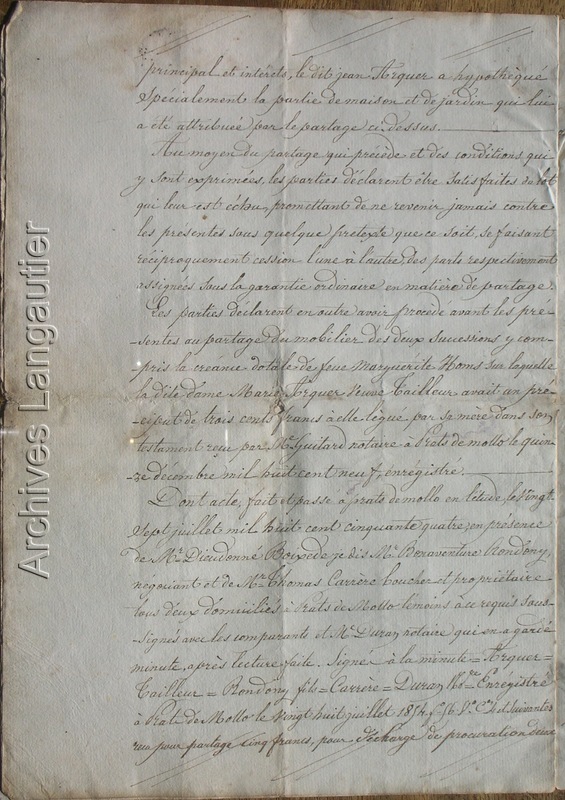 principal et intérêts, le dit jean Arquer a hypothéqué
Spécialement la partie de maison et de jardin qui lui
a été attribuée par le partage ci-dessus.
Au moyen du partage qui précède et des conditions qui
y sont exprimées, les parties déclarent être satisfaites du lot
qui leur est échu, promettant de ne revenir jamais contre
les présentes sous quelque prétexte que ce soit, se faisant
réciproquement cession l'une à l'autre, des parts respectivement
assignées sous la garantie ordinaire en matière de partage.
Les parties déclarent en outre avoir procédé avant les pré-
-sentes au partage du mobilier des deux successions y com-
-pris la créance dotale de feue Marguérite Homs sur laquelle
la dite dame Marie Arquer veuve Tailleur avait un pré-
-ciput de trois cents francs à elle légué par sa mère dans son
testament reçu par Me Guitard notaire à Prats de mollo le quin-
-ze décembre mil huit cent neuf, enregistré.
Dont acte, fait et passé à prats de mollo en l'étude, le vingt
Sept juillet mil huit cent cinquante quatre, en présence
de Mr Dieudonné Boixede je dis Mr Bonaventure Rondony,
négociant et de Mr Thomas Carrère boucher et propriétaire
tous deux domiciliés à Prats de Mollo témoins à ce requis sous-
-signés avec les comparants et Me Duran notaire qui en a gardé
minute, après lecture faite. Signé à la minute = Arquer =
Tailleur = Rondony fils = Carrère = Duran Nore Enregistré
à Prats de Mollo le vingt huit juillet 1854 fo 56 Vo Ce 4 et suivantes
reçu pour partage cinq francs, pour décharge de procuration deux
Archives Langautier